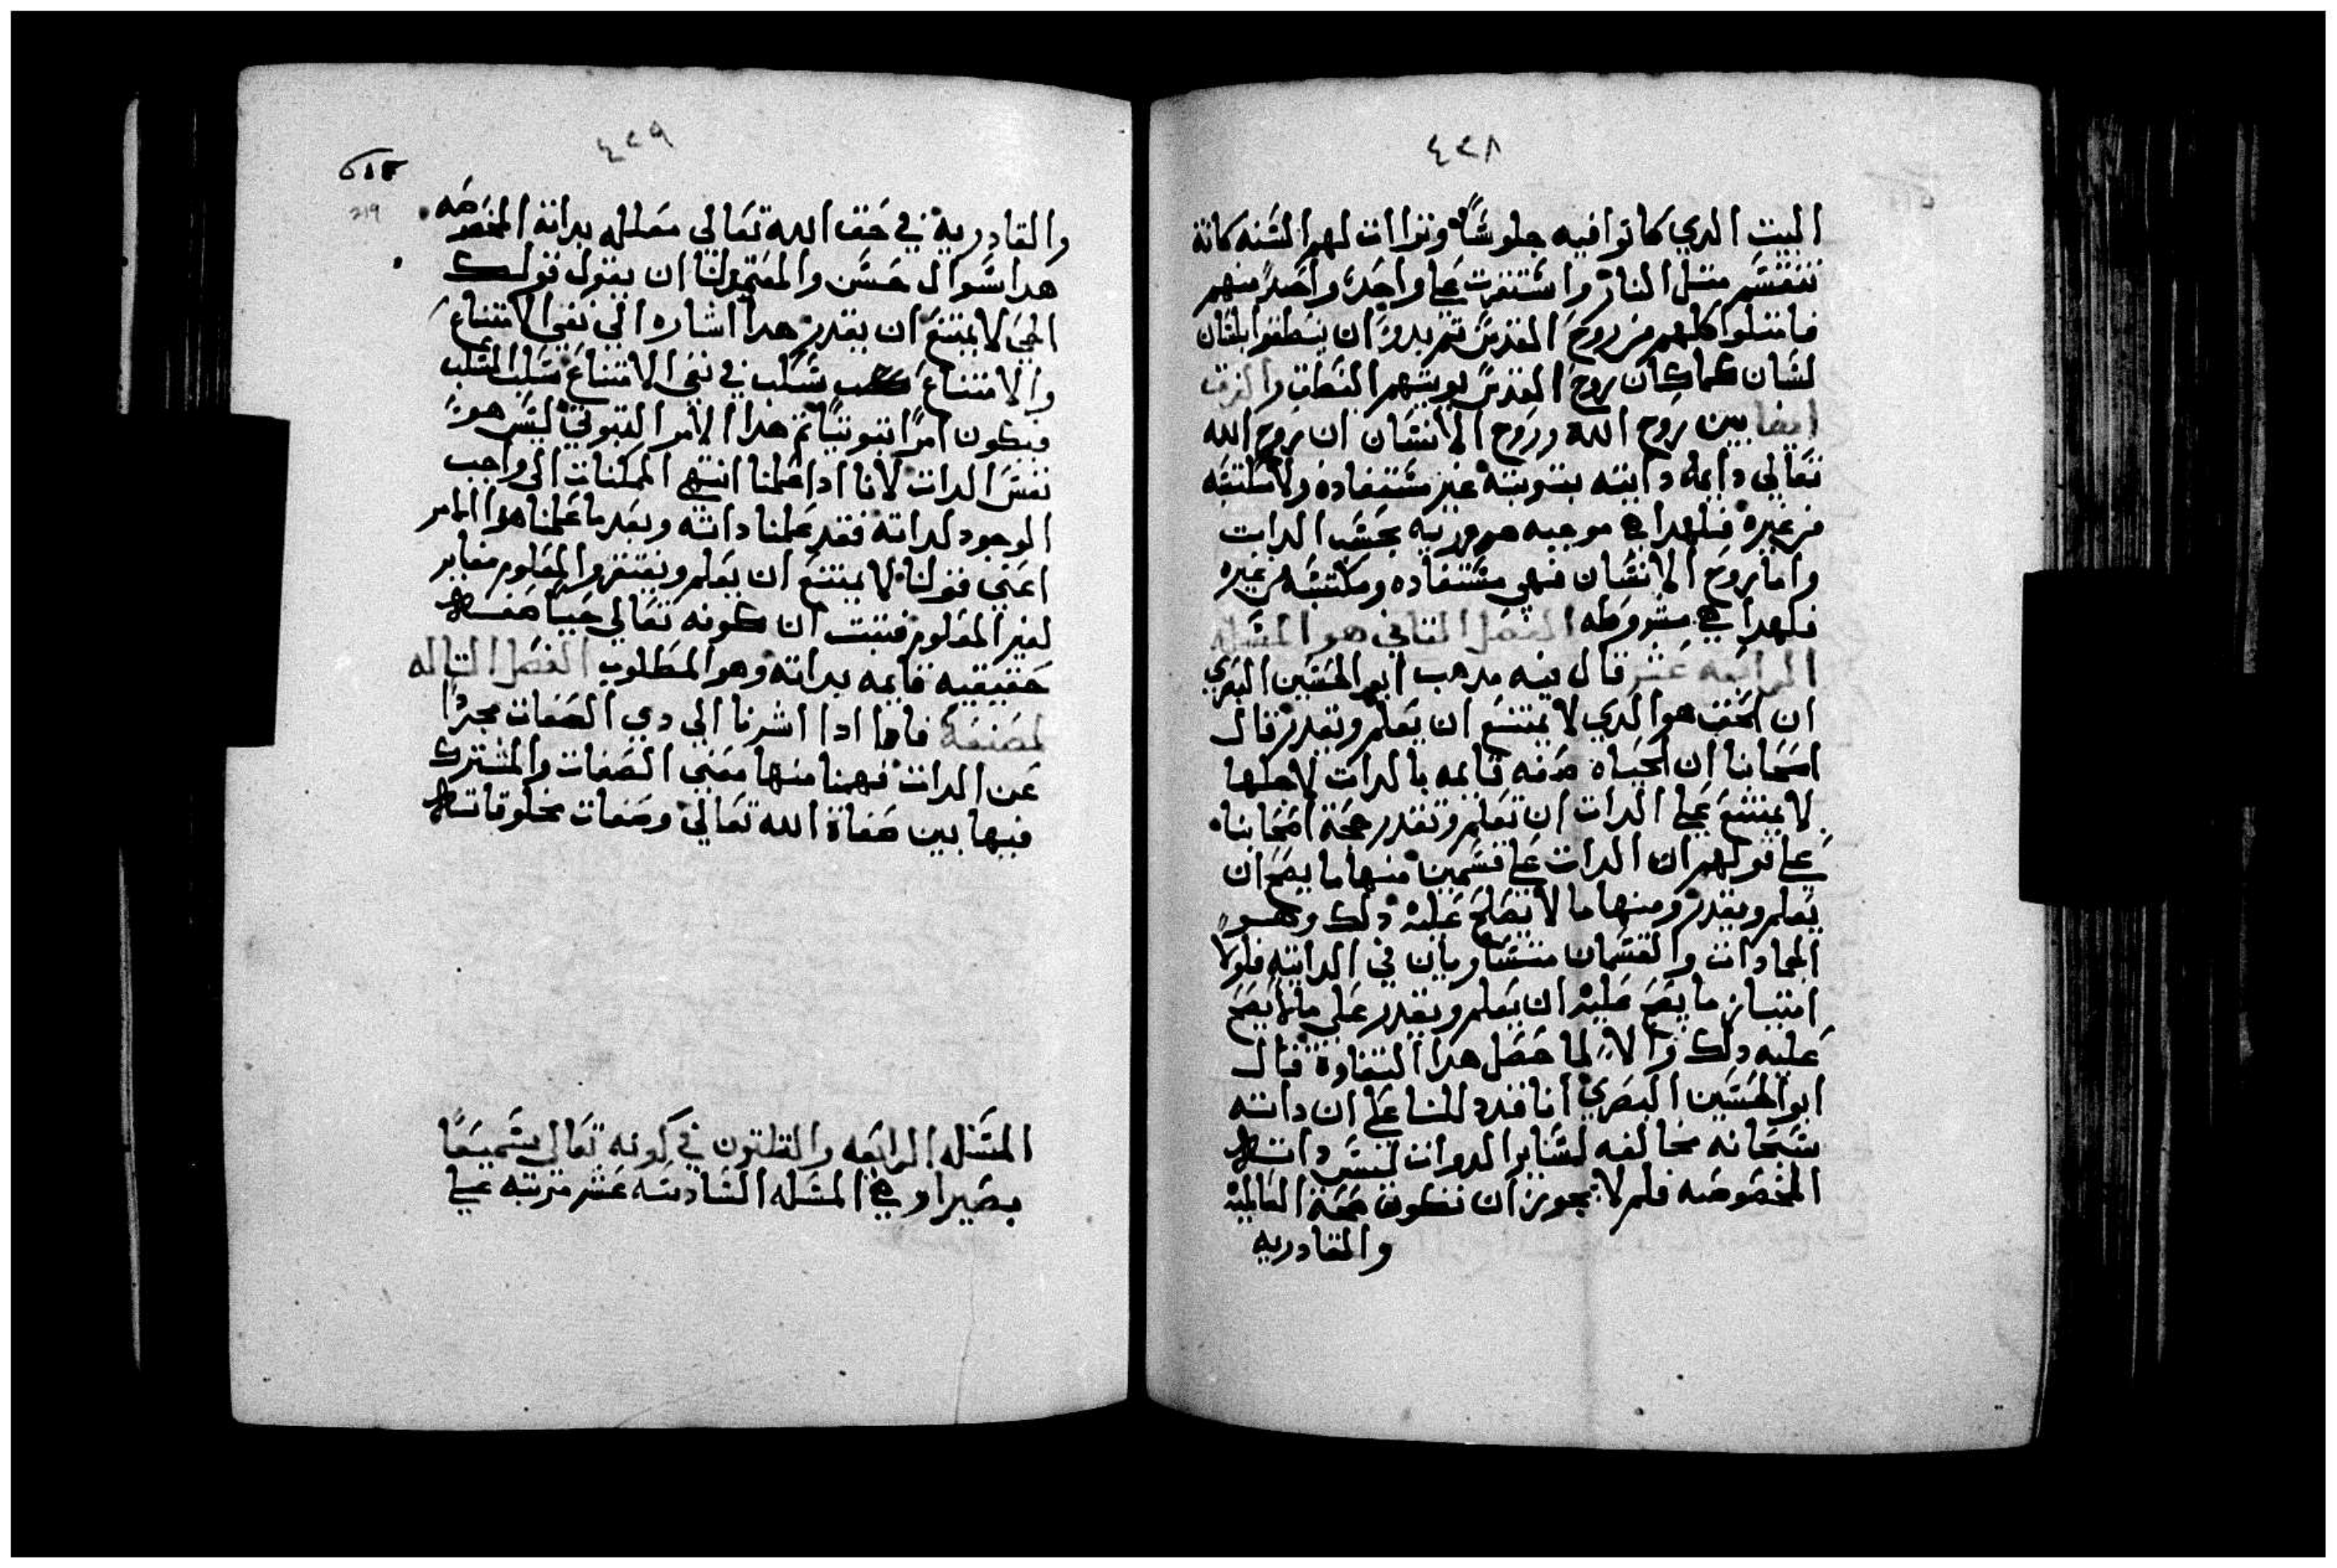 ٤٢٨
البيت الدي كانوا فيه جلوسًا وتراات لهم السنه كانة
تنقسم متل النار واستقرت علي واحدٍ واحدٍ منهم
فامتلوا كلهم من روح القدس تم بدوا ان ينطقوا بلسان
لسان كما كان روح القدس يويتهم النطق والفرق
ايضا بين روح الله وروح الانسان ان روح الله
تعالي دايمة داتيه تبوتيه غير مستفاده ولا مكتسبه
من غيره فلهدا هي موجبه ضروريه بحسب الدات
واما روح الانسان فهي مستفاده ومكتسبه من غيره
فلهدا هي مشروطه الفصل التاني هو المسله
الرابعه عشر قال فيه مدهب ابو الحسين البصري
ان الحي هو الدي لا يمتنع ان يعلم ويقدر قال
اصحابنا ان الحياه صفه قايمه بالدات لاجلها
لا يمتنع علي الدات ان تعلم وتقدر حجة اصحابنا
علي قولهم ان الدات علي قسمين منها ما يصح ان
يعلم ويقدر ومنها ما لا يصح عليه دلك وهو
الجمادات والقسمان متساويان في الداتيه فلولا
امتياز ما يصح عليه ان يعلم ويقدر علي ما لا يصح
عليه دلك والا لما حصل هدا التفاوة قال
ابو الحسين البصري انا قد دللنا علي ان داته
سبحانه مخالفه لساير الدوات لنفس داته
المخصوصه فلم لا يجوز ان تكون صحة العالميه
والقادريه
٤٢٩
والقادريه في حق الله تعالي معلله بداته المخصوصه
هدا سوال حسن والمعتمد لنا ان يقول قولك
الحي لا يمتنع ان يقدر هدا اشاره الي نفي الامتناع
والامتناع سلب في نفي الامتناع سلب السلب
فيكون امرًا تبوتيًا تم هدا الامر التبوتي ليس هو
نفس الدات لانا ادا علمنا انتهي الممكنات الي واجب
الوجود لداته فقد علمنا داته وبعد ما علمنا هدا الامر
اعني قولنا لا يمتنع ان يعلم ويقدر والمعلوم مغاير
لغير المعلوم فتبت ان كونه تعالي حيًا صفه
حقيقيه قايمه بداته وهو المطلوب الفصل التاله
لمصنفه فاما ادا اشرنا الي دي الصفات مجردًا
عن الدات فهمنا منها معني الصفات والمشترك
فيها بين صفاة الله تعالي وصفات مخلوقاته
المسله الرابعه والتلتون في كونه تعالي سميعًا
بصيرا وهي المسله السادسه عشر مرتبه علي